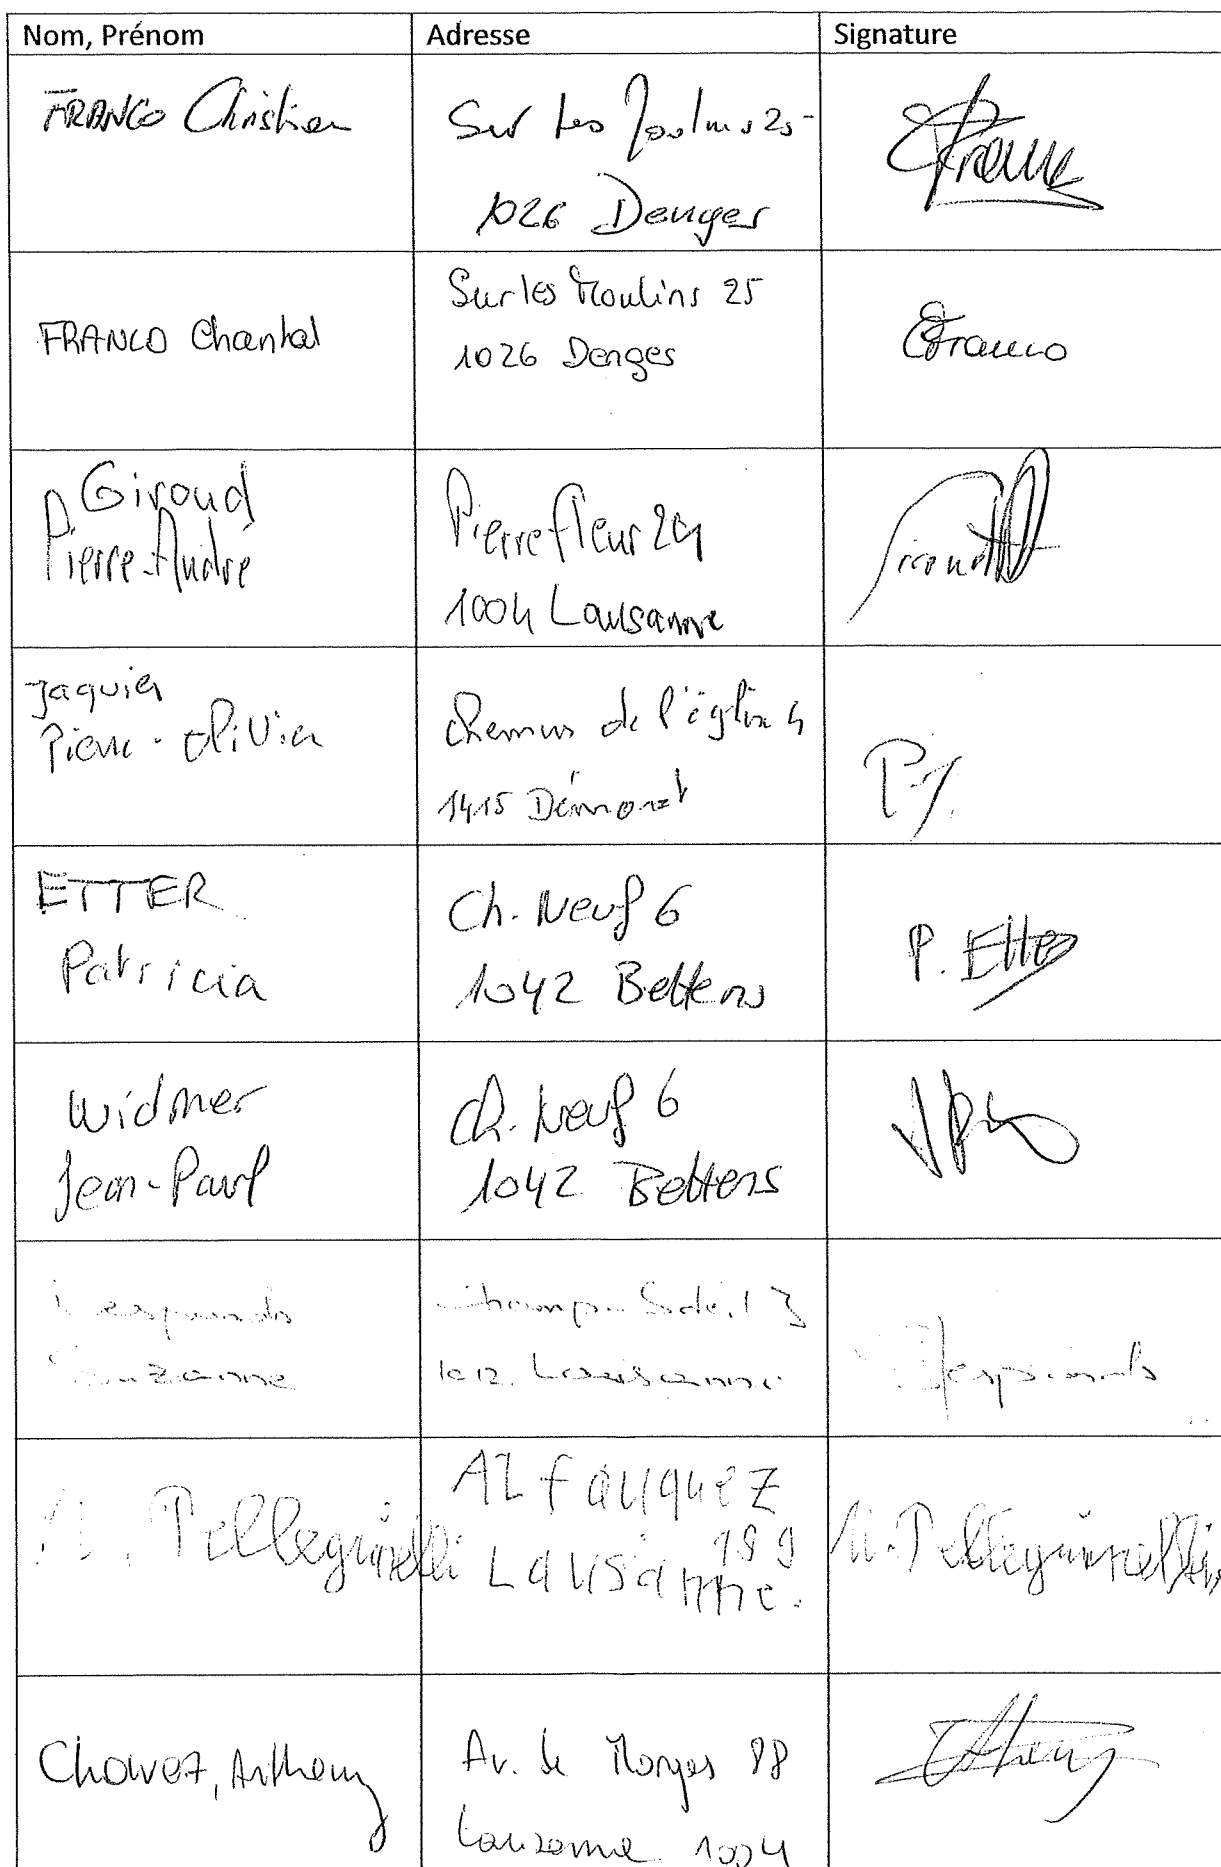 Nom, Prénom
Adresse
Signature
FRANCO Christian
Sur Les Moulins 25
1026 Denges
Franco
FRANCO Chantal
Sur les Moulins 25
1026 Denges
CFranco
Giroud
Pierre-André
Pierrefleur 24
1004 Lausanne
Giroud
Jaquier
Pierre-Olivier
Chemin de l'église 4
1415 Démoret
P.J.
ETTER
Patricia
Ch. Neuf 6
1042 Bettens
P. Etter
Widmer
Jean-Paul
Ch. Neuf 6
1042 Bettens
Suzanne
Champ-Soleil 3
1012 Lausanne
Pellegrinelli
Fauquez
Lausanne.
Pellegrinelli
Chavez, Anthony
Av. de Morges 88
Lausanne 1004